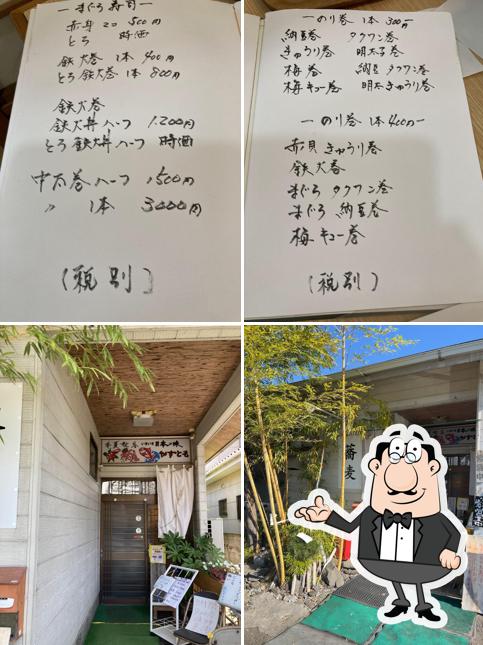 ー まぐろ 寿司 ー
赤身 2コ 500円
とろ 時価
鉄火巻 1本 400円
とろ鉄火巻 1本 800円
鉄火巻
鉄火丼 ハーフ 1.200円
とろ鉄火丼 ハーフ 時価
中太巻 ハーフ 1500円
〃 1本 3000円
(税別)
ー のり巻 1本 300円 ー
納豆巻 タクワン巻
きゅうり巻 明太子巻
梅巻 納豆タクワン巻
梅キュー巻 明太きゅうり巻
ー のり巻 1本 400円 ー
赤貝きゅうり巻
鉄火巻
まぐろタクワン巻
まぐろ納豆巻
梅キュー巻
(税別)
日本の味
かずとも
蕎麦